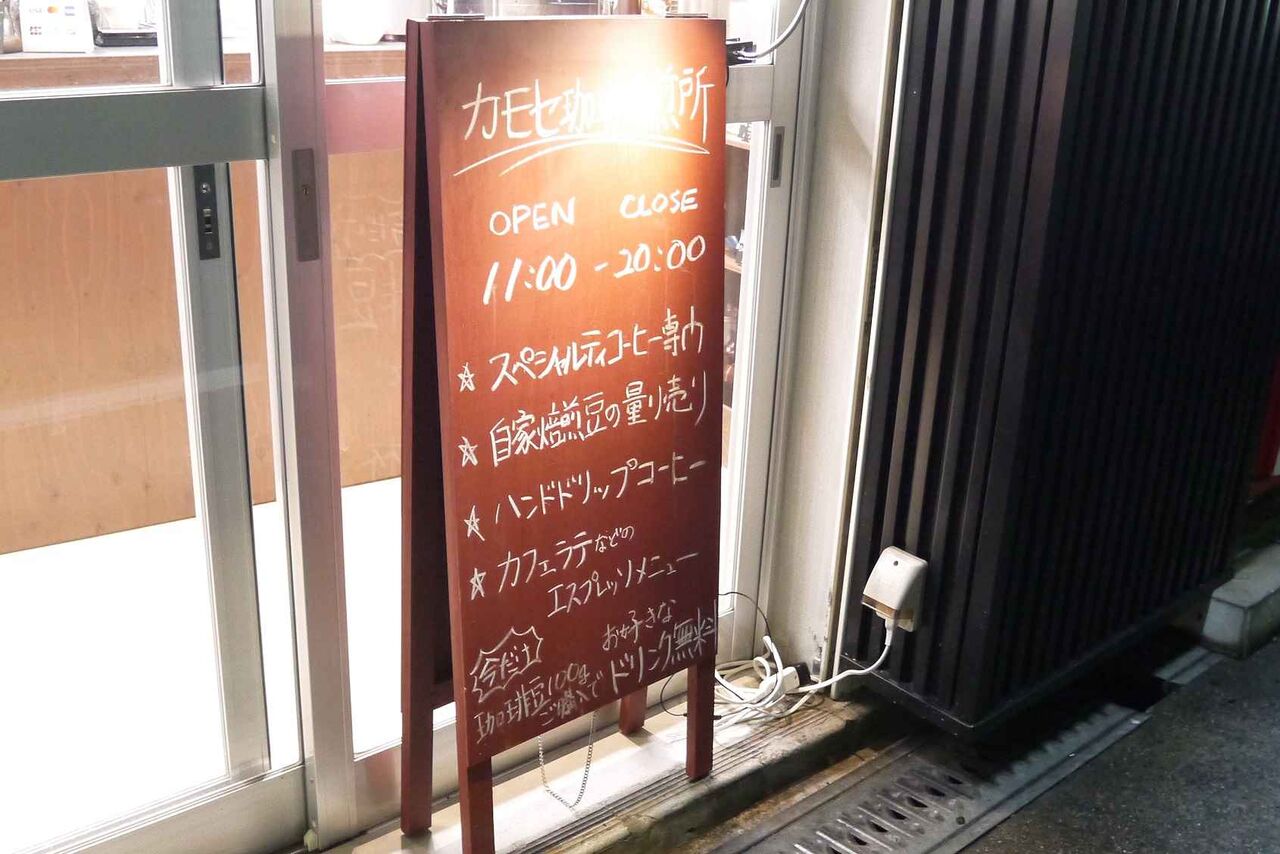 カモセ珈琲焙煎所
OPEN CLOSE
11:00 - 20:00
☆ スペシャルティコーヒー専門
☆ 自家焙煎豆の量り売り
☆ ハンドドリップコーヒー
☆ カフェラテなどの
エスプレッソメニュー
今だけ
珈琲豆100g
ご購入で
お好きな
ドリンク無料